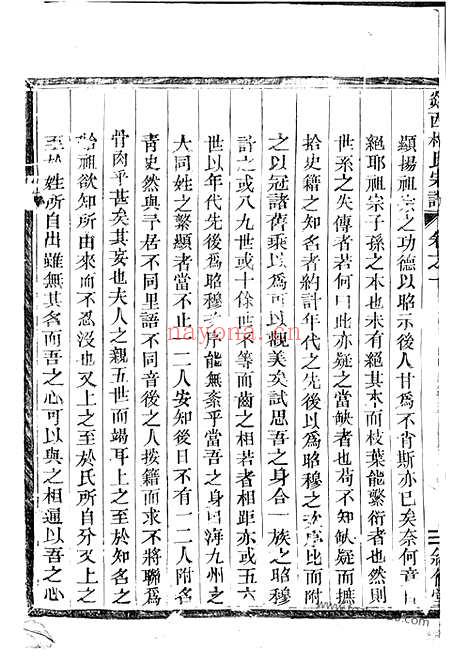 剡西楊氏宗譜 卷之一
顯揚祖宗之功德以昭示後人甘爲不肖斯亦已矣奈何竟自
絕耶祖宗子孫之本也未有絕其本而枝葉能繁衍者也然則
世系之失傳者若何曰此亦疑之當缺者也苟不知缺疑而摭
拾史籍之知名者約計年代之先後以爲昭穆之次序比而附
之以冠諸舊乘以爲可以觀美矣試思吾之身合一族之昭穆
計之或八九世或十餘世不等而齒之相若者相距亦或五六
世以年代先後爲昭穆之序能無紊乎當吾之身四海九州之
大同姓之繫顯者當不止一二人安知後日不有一二人附名
靑史然與予居不同里語不同音後之人援籍而求不將聯爲
骨肉乎甚矣其妄也夫人之親五世而竭耳上之至於知名之
始祖欲知所由來而不忍沒也又上之至於氏所自分又上之
至於姓所自出雖無其名而吾之心可以與之相通以吾之心
nayona.cn